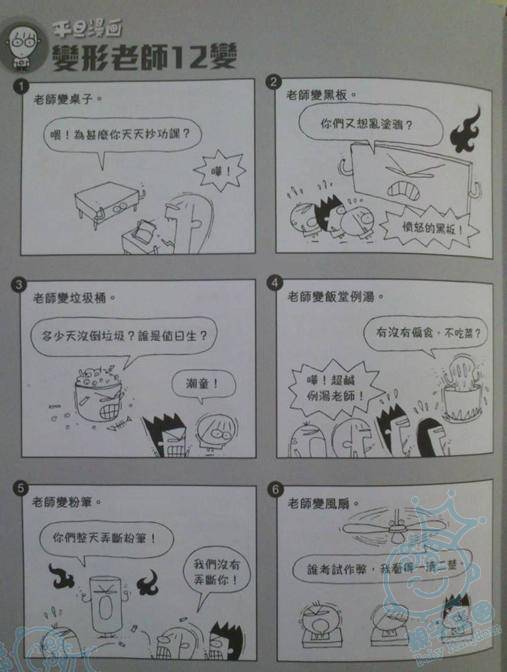 平旦漫画
變形老師12變
1
老師變桌子。
喂！為甚麼你天天抄功課？
嘩！
2
老師變黑板。
你們又想亂塗鴉？
憤怒的黑板！
3
老師變垃圾桶。
多少天沒倒垃圾？誰是值日生？
潮童！
4
老師變飯堂例湯。
有沒有偏食，不吃菜？
嘩！超鹹
例湯老師！
5
老師變粉筆。
你們整天弄斷粉筆！
我們沒有
弄斷你！
6
老師變風扇。
誰考試作弊，我看得一清二楚。
Baby Kingdom